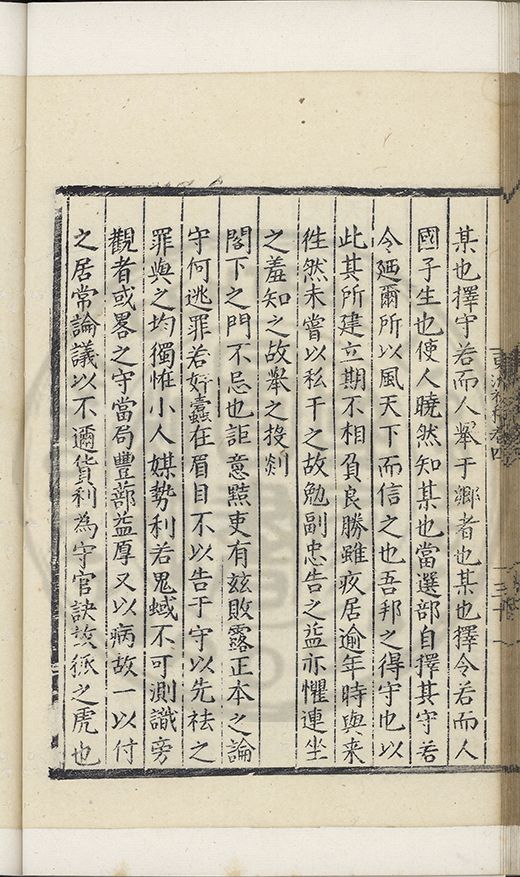 某也擇守若而人舉于鄉者也某也擇令若而人
國子生也使人曉然知某也當選部自擇其守若
令廼爾所以風天下而信之也吾邦之得守也以
此其所建立期不相負良勝雖疚居逾年時與来
徃然未嘗以私干之故勉副忠告之益亦懼連坐
之羞知之故舉之投剡
閣下之門不忌也詎意黠吏有玆敗露正本之論
守何逃罪若奸蠹在眉目不以告于守以先祛之
罪與之均獨惟小人媒勢利若鬼蜮不可測識旁
觀者或畧之守當局豐蔀益厚又以病故一以付
之居常論議以不邇貨利為守官訣該派之虎也
卷四